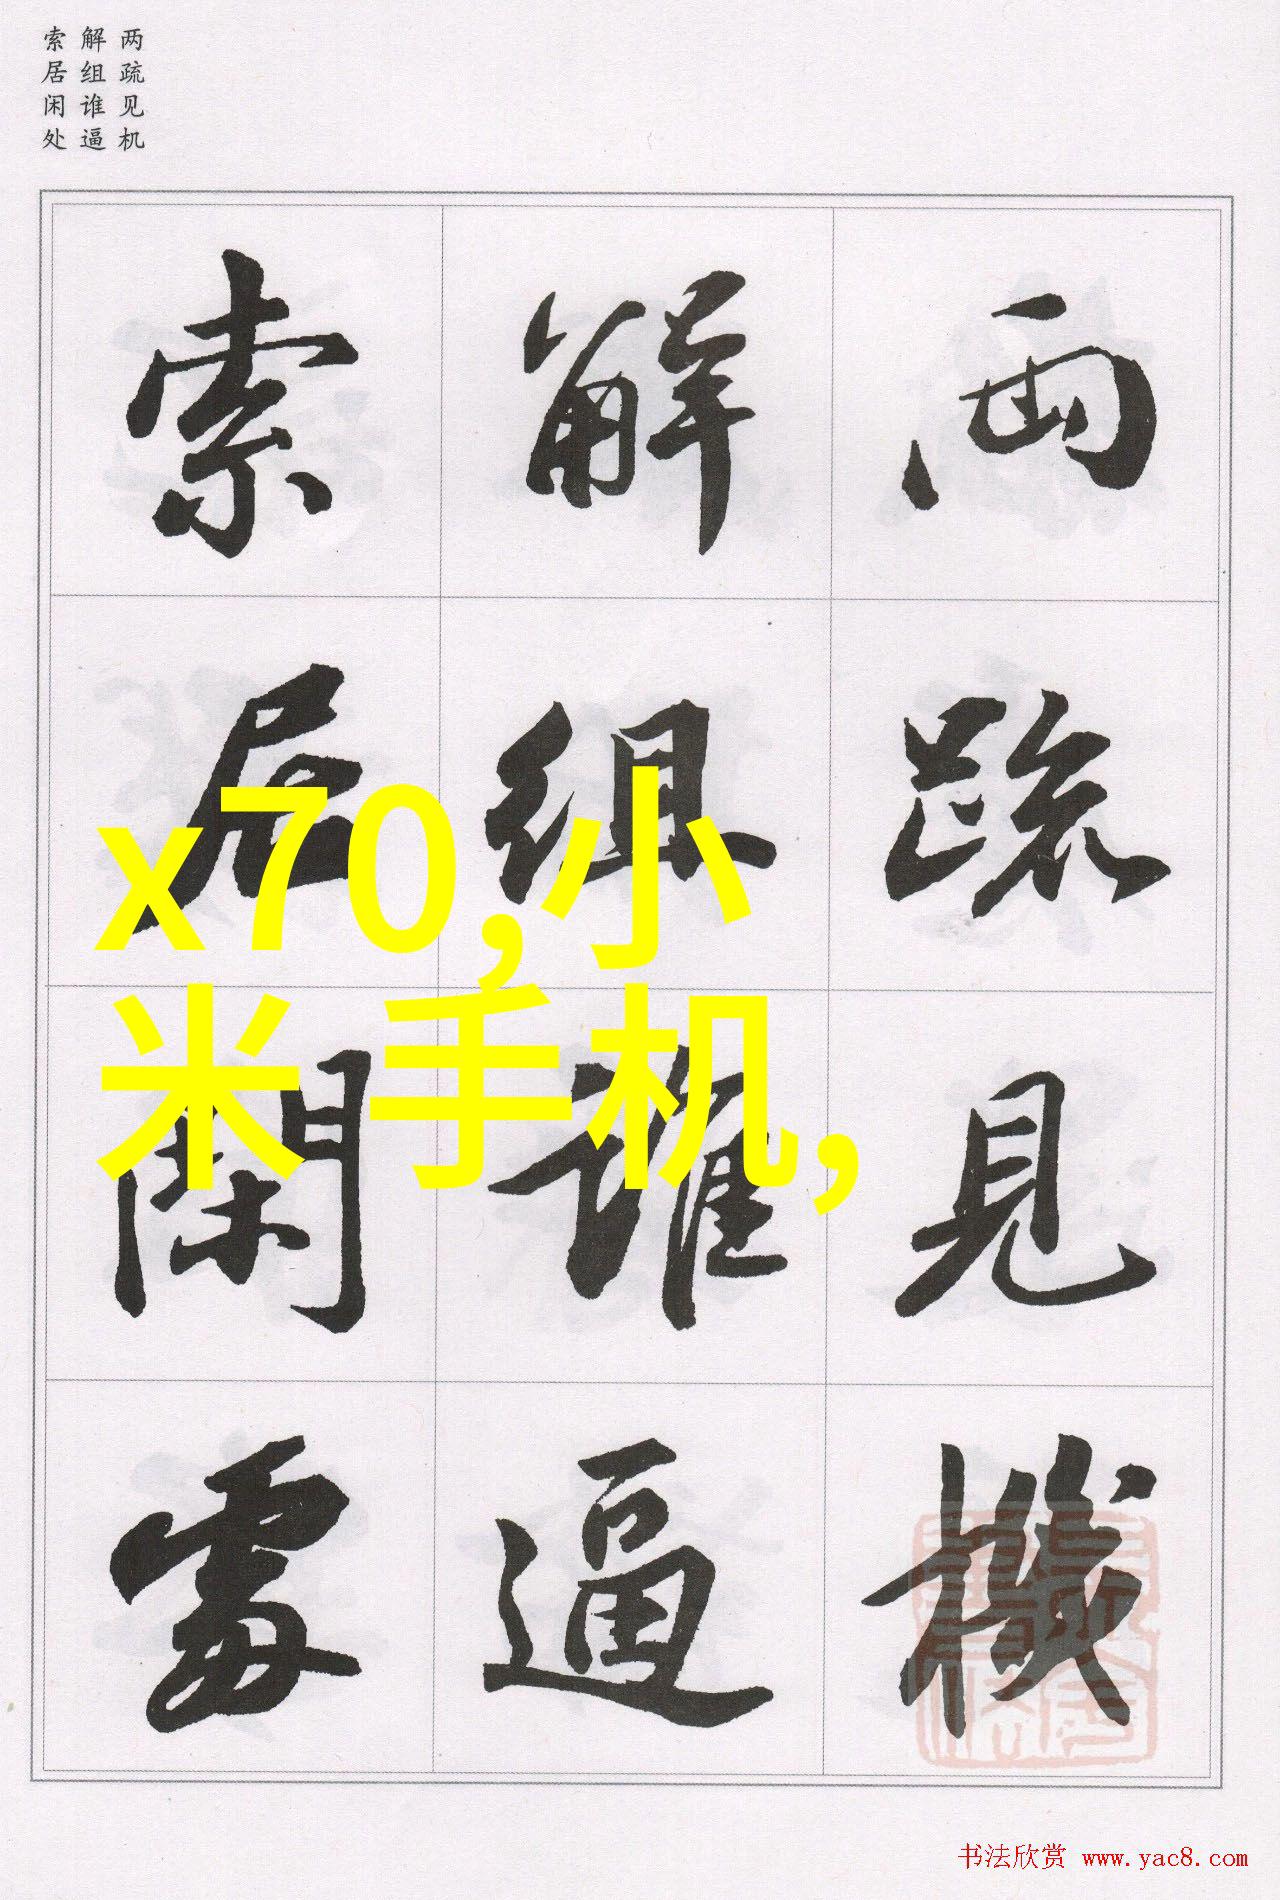 两疏见机
解组谁逼
索居闲处
兩疏見機
解組誰逼
索居閑處
x70,小
米手机,
书法欣赏 www.yac8.com